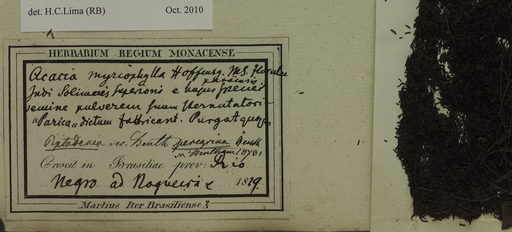 det. H.C.Lima (RB) Oct. 2010
HERBARIUM REGIUM MONACENSE
Acacia myriophylla Hoffmg. MS.
Indi Solimoës superoris e hujus speciei
semine pulverem suum sternutatori-
"Parica" dictum fabricant. Purgat quoque
Piptadenia sec. Benth peregrina Benth
Bentham 1873!
Crescit in Brasiliae prov: Rio
Negro ad Nogueira 1819.
Martius Iter Brasiliense